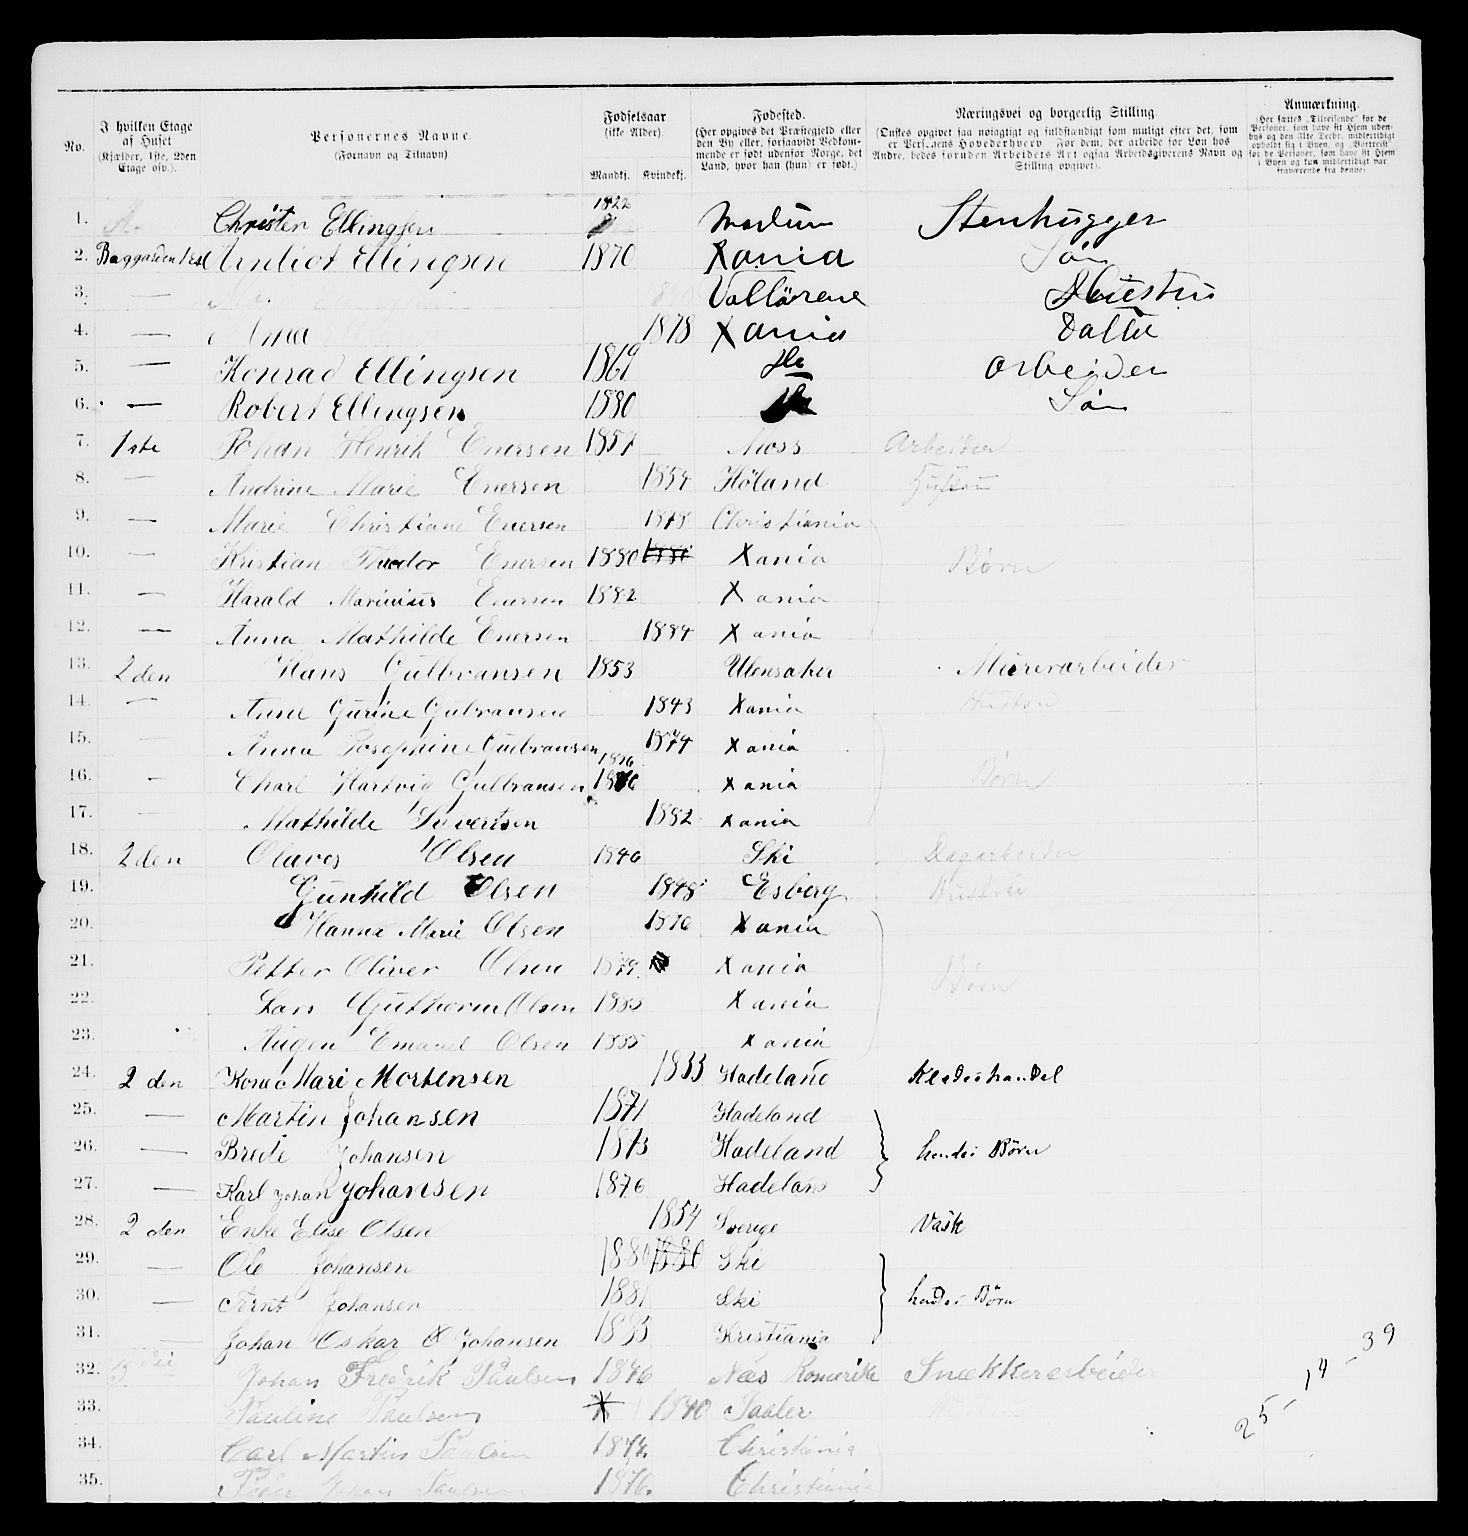 No. I hvilken Etage af Huset (Kjælder, 1ste, 2den Etage osv.). Personernes Navne. (Fornavn og Tilnavn) Fødselsaar (ikke Alder). Mandkj. Kvindekj. Fødested. (Her opgives det Præstegjeld eller den By eller, forsaavidt Vedkommende er født udenfor Norge, det Land, hvor han (hun) er født.) Næringsvei og borgerlig Stilling (Ønskes opgivet saa nøiagtigt og fuldstændigt som muligt efter det, som er Personens Hovederhverv. For dem, der arbeide for Løn hos Andre, bedes foruden Arbeidets Art ogsaa Arbeidsgiverens Navn og Stilling opgivet). Anmærkning. (Her sættes „Tilreisende" for de Personer, som have sit Hjem udenbys og den 31te Decbr. midlertidigt opholdt sig i Byen, og „Bortreist" for de Personer, som have sit Hjem i Byen og kun midlertidigt var fraværende fra denne)
1. Christen Ellingsen 1822 Modum Stenhugger
2. Baggaarden 1ste Ellingsen 1870 Xania Søn
3. — Vallörene Hustru
4. — Anna 1878 Xania Datter
5. — Konrad Ellingsen 1869 Do Arbeider
6. — Robert Ellingsen 1880 Do Søn
7. 1ste Johan Henrik Enersen 1857 Moss Arbeider
8. — Andrine Marie Enersen 1854 Høland Hustru
9. — Marie Christiane Enersen 1878 Christiania
10. — Kristian Theodor Enersen 1880 Xania Børn
11. — Harald Marinius Enersen 1882 Xania
12. — Anna Mathilde Enersen 1884 Xania
13. 2den Hans Gulbransen 1853 Ulensaker Murerarbeider
14. — Anne Gurine Gulbransen 1843 Xania Hustru
15. — Anna Josephine Gulbransen 1874 Xania
16. — Charl Hartvig Gulbransen 1876 Xania Børn
17. — Mathilde Sivertsen 1882 Xania
18. 2den Olaves Olsen 1846 Ski Dagarbeider
19. Gunhild Olsen 1848 Esberg Hustru
20. Hanna Marie Olsen 1876 Xania
21. Petter Oliver Olsen 1879 Xania Børn
22. Lars Guthorm Olsen 1883 Xania
23. Augen Emanuel Olsen 1885 Xania
24. 2den Mari Mortensen 1833 Hadeland Kledeshandel
25. — Martin Johansen 1871 Hadeland
26. — Brede Johansen 1873 Hadeland hendes Børn
27. — Karl Johan Johansen 1876 Hadeland
28. 2den Enke Elise Olsen 1854 Sverige Vask
29. — Ole Johansen 1880 1880 Ski
30. — Arnt Johansen 1881 Ski hendes Børn
31. — Johan Oskar Johansen 1885 Kristiania
32. Johan Fredrik Paulsen 1846 Næs Romerike Snekkerarbeider
33. Pauline Paulsen 1840 Saaler
34. Carl Martin Paulsen Christiania
35. Johan Paulsen 1876. Christiania
25 – 14 – 39